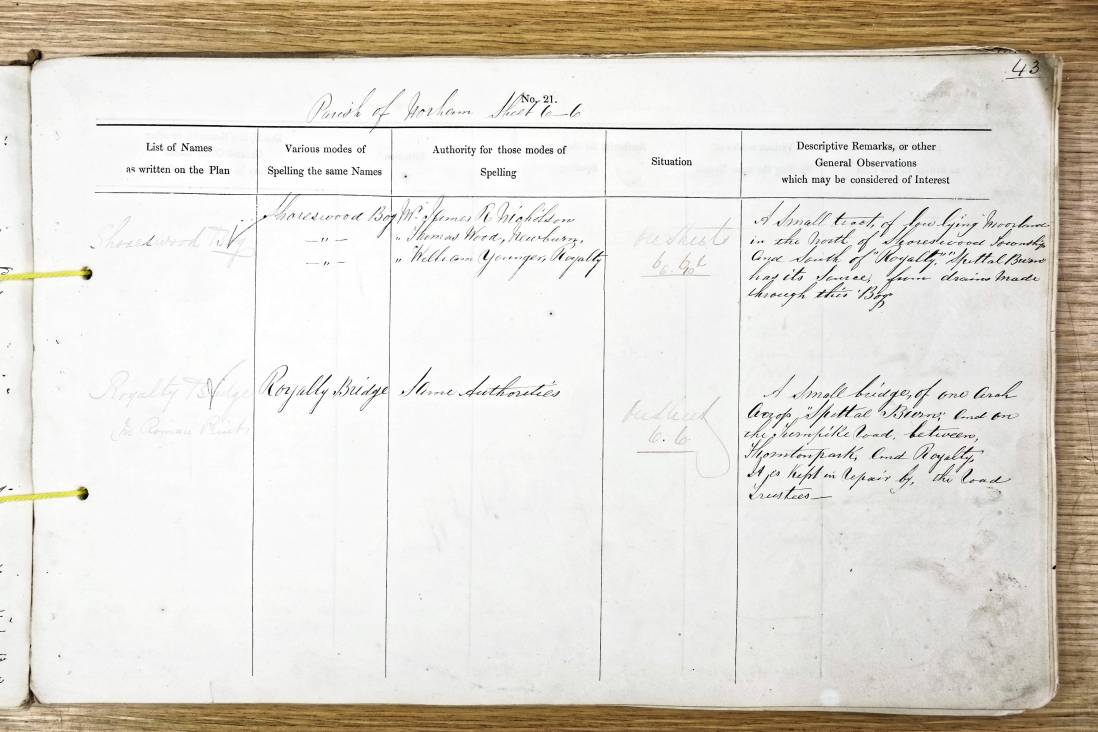 43
No. 21.
Parish of Norham Sheet 6-6
List of Names
as written on the Plan
Various modes of
Spelling the same Names
Authority for those modes of
Spelling
Situation
Descriptive Remarks, or other
General Observations
which may be considered of Interest
Shoreswood Bog
Shoreswood Bog
—„—
—„—
Mr. James R. Nicholson
„ Thomas Wood, Newburn,
„ William Younger, Royalty
On Sheets
A Small tract, of low lying Moorland
in the North of Shoreswood Township
and South of "Royalty." "Spittal Burn
has its Source, from drains made
through this Bog
Royalty Bridge
(In Roman Print)
Royalty Bridge
Same Authorities
On Sheet
6. 6
A Small bridge, of one Arch
Across, "Spittal Burn," and on
the Turnpike road, between,
Thorntonpark, and Royalty.
It is kept in repair by, the road
trustees—